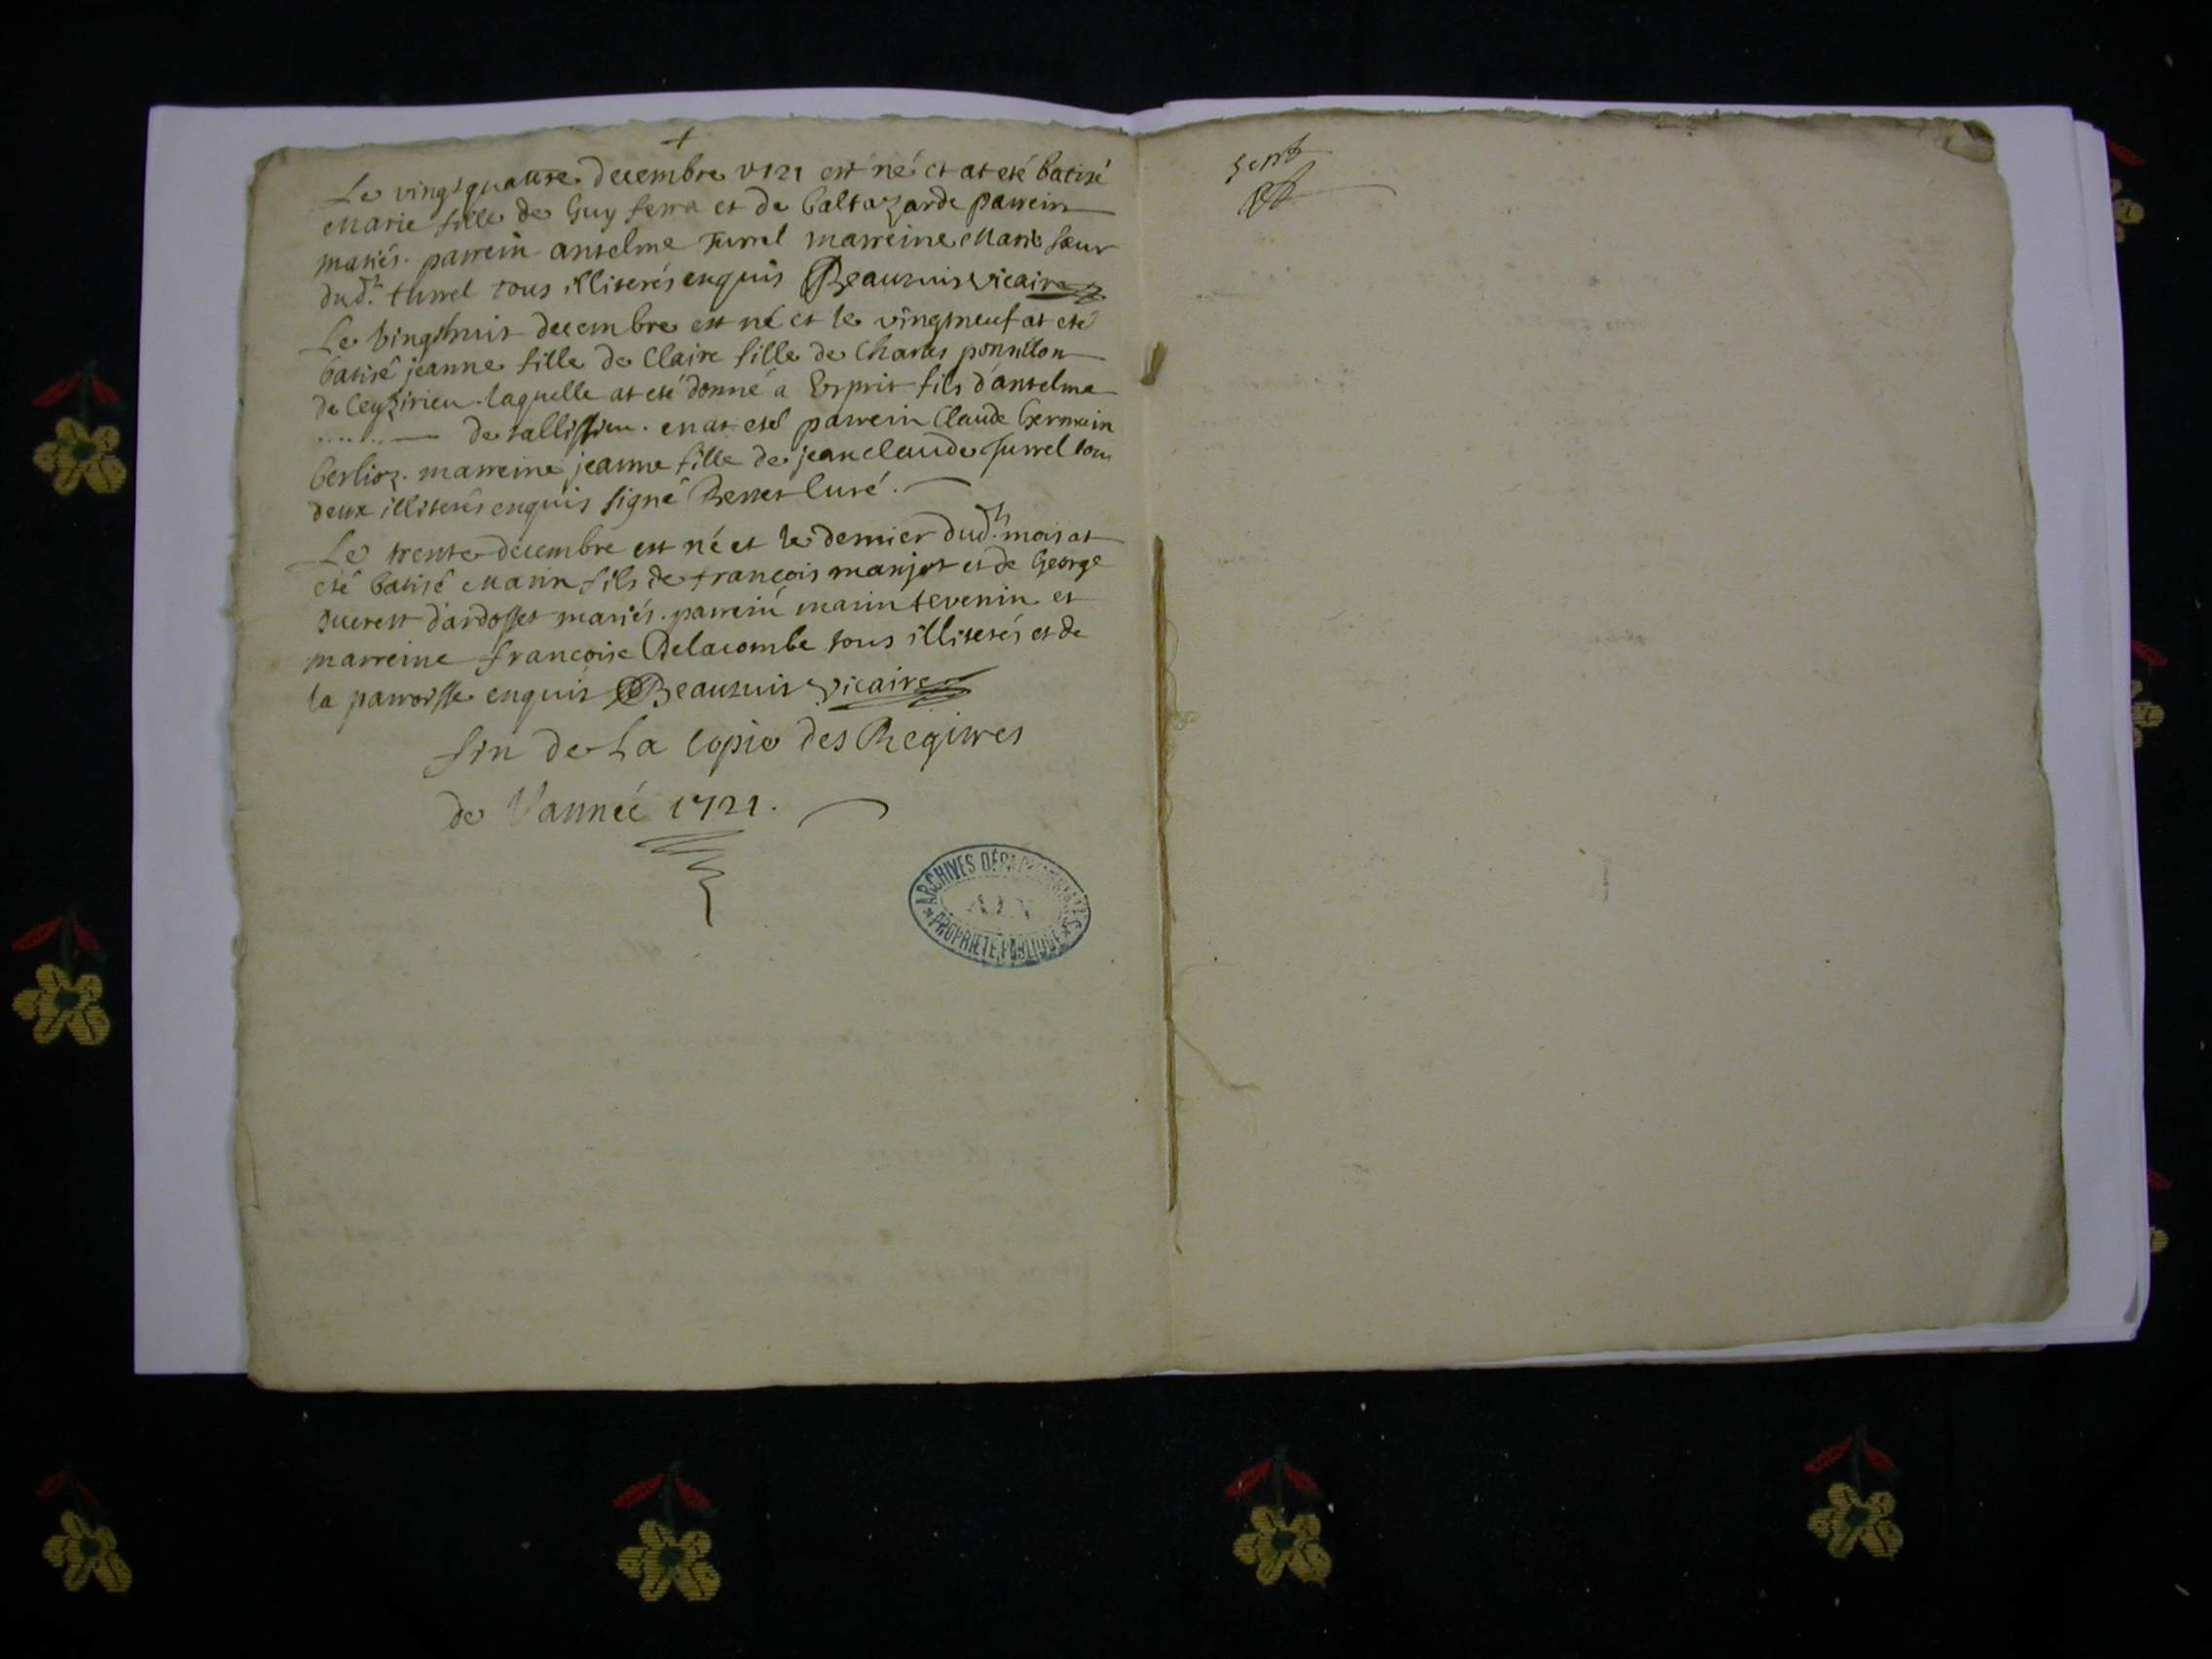 Le vingtquattre decembre 1721 est né et at eté batisé
Marie fille de Guy serra et de baltazarde parrein
mariés. parrein anselme Turrel marreine Marie sœur
dud.t turrel tous illiterés enquis Beausuis vicaire
Le vingthuit decembre est né et le vingtneuf at eté
batisé jeanne fille de Claire fille de Charles ponsillon
de Ceyzirieu. laquelle at eté donné a Esprit fils d'antelme
........ de tallissieu. en at eté parrein Claude Germain
berlioz. marreine jeanne fille de jean claude Turrel tous
deux illiterés enquis signé Curé.
Le trente decembre est né et le dernier dud.t mois at
eté batisé Marin fils de françois manjot et de George
d'ardosset mariés. parrein marin tevenin et
marreine françoise Delacombe tous illiterés et de
la parroisse enquis Beausuis vicaire
fin de La copie des Regitres
de l'année 1721.
ARCHIVES DÉPARTEMENTALES
AIN
PROPRIETE PUBLIQUE
sept